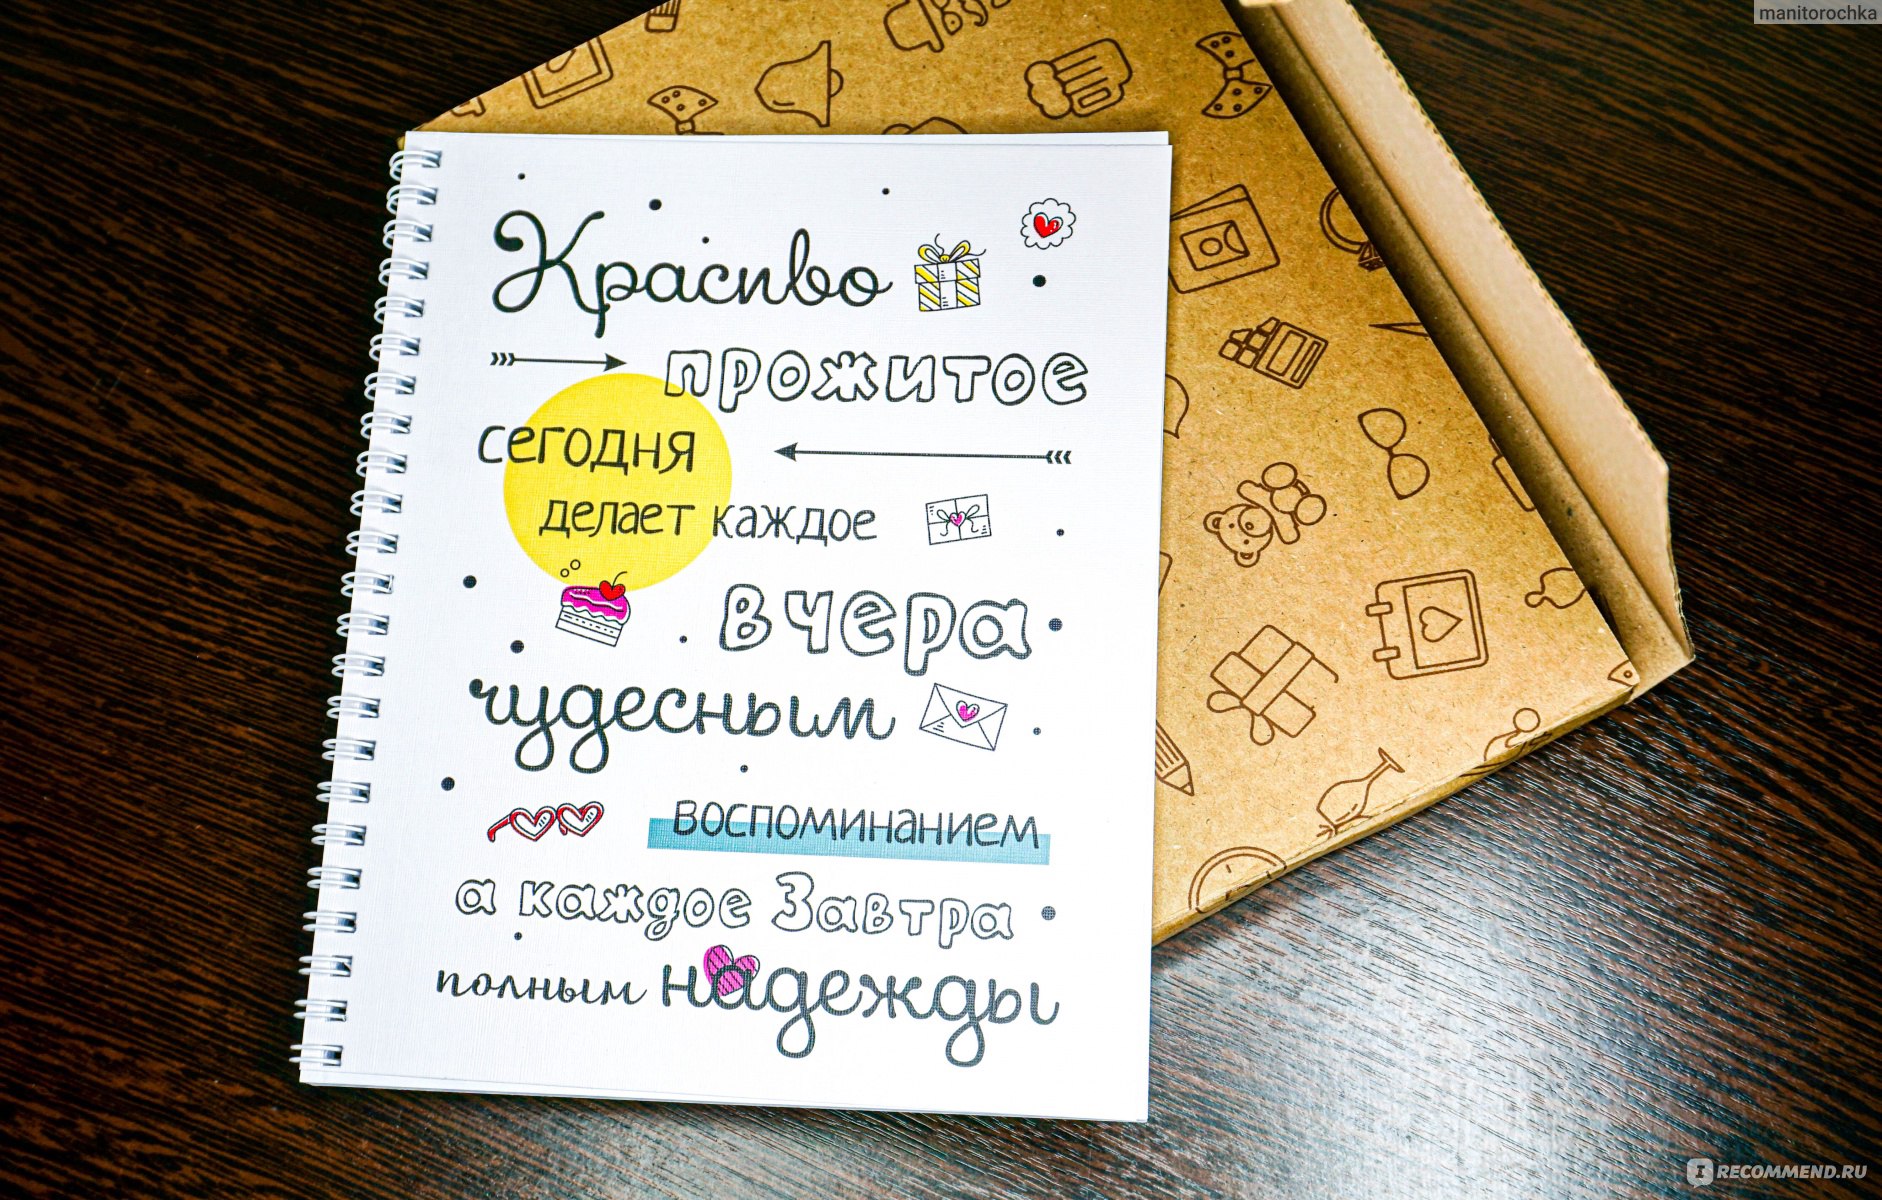 manitorochka
Красиво
прожитое
сегодня
делает каждое
вчера
чудесным
воспоминанием
а каждое Завтра
полным надежды
RECOMMEND.RU